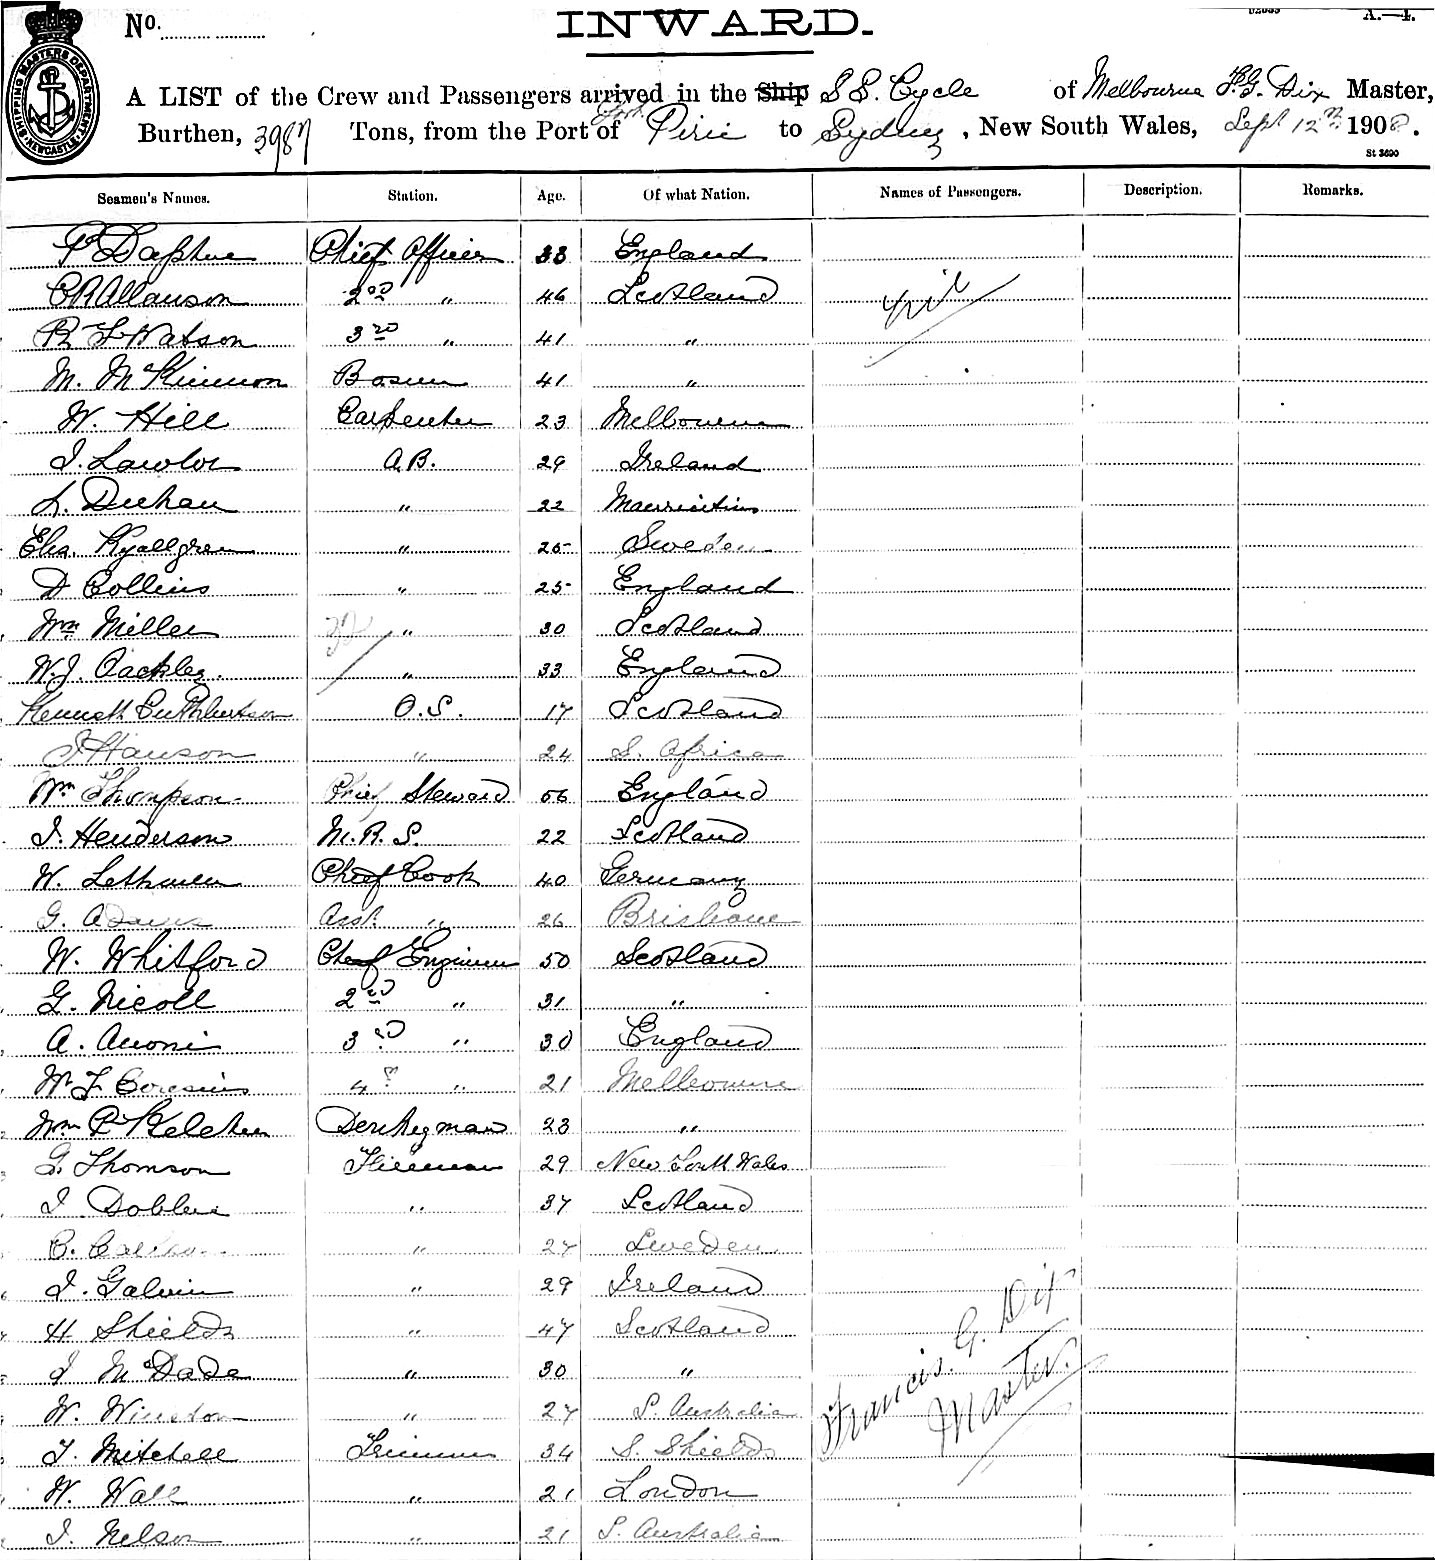 No.
INWARD.
A.—4.
SHIPPING MASTERS DEPARTMENT NEWCASTLE
A LIST of the Crew and Passengers arrived in the Ship S S. Cycle of Melbourne F. G. Dix Master,
Burthen, 3987 Tons, from the Port of Port Pirie to Sydney, New South Wales, Sept 12th 1908.
St 3690
Seamen's Names. Station. Age. Of what Nation. Names of Passengers. Description. Remarks.
Chief Officer 33 England
C R Allanson 2nd " 46 Scotland nil
R L Watson 3rd " 41 "
M. McKinnon Bosun 41 "
W. Hill Carpenter 23 Melbourne
J. Lawlor A.B. 29 Ireland
L. " 22 Mauritius
Chs. Kyallgren " 25 Sweden
D Collins " 25 England
Wm Miller 32 " 30 Scotland
W. J. " 33 England
Kenneth Cuthbertson O.S. 17 Scotland
J Hanson " 24 S. Africa
Wm Thompson Chief Steward 56 England
J. Henderson M.R.S. 22 Scotland
W. Chief Cook 40 Germany
G. Adams Asst. " 26 Brisbane
W. Whitford Chief Engineer 50 Scotland
G. Nicoll 2nd " 31 "
A. 3rd " 30 England
W. J Cousins 4th " 21 Melbourne
Wm P Donkeyman 23 "
G. Thomson Fireman 29 New South Wales
J. " 37 Scotland
C. " 27 Sweden
J. Galvin " 29 Ireland
H Shields " 47 Scotland
J McDade " 30 "
W. Winston " 27 S. Australia
J. Mitchell Trimmer 34 S. Shields
W. Wall " 21 London
J. Nelson " 21 S. Australia
Francis. G. Dix
Master.